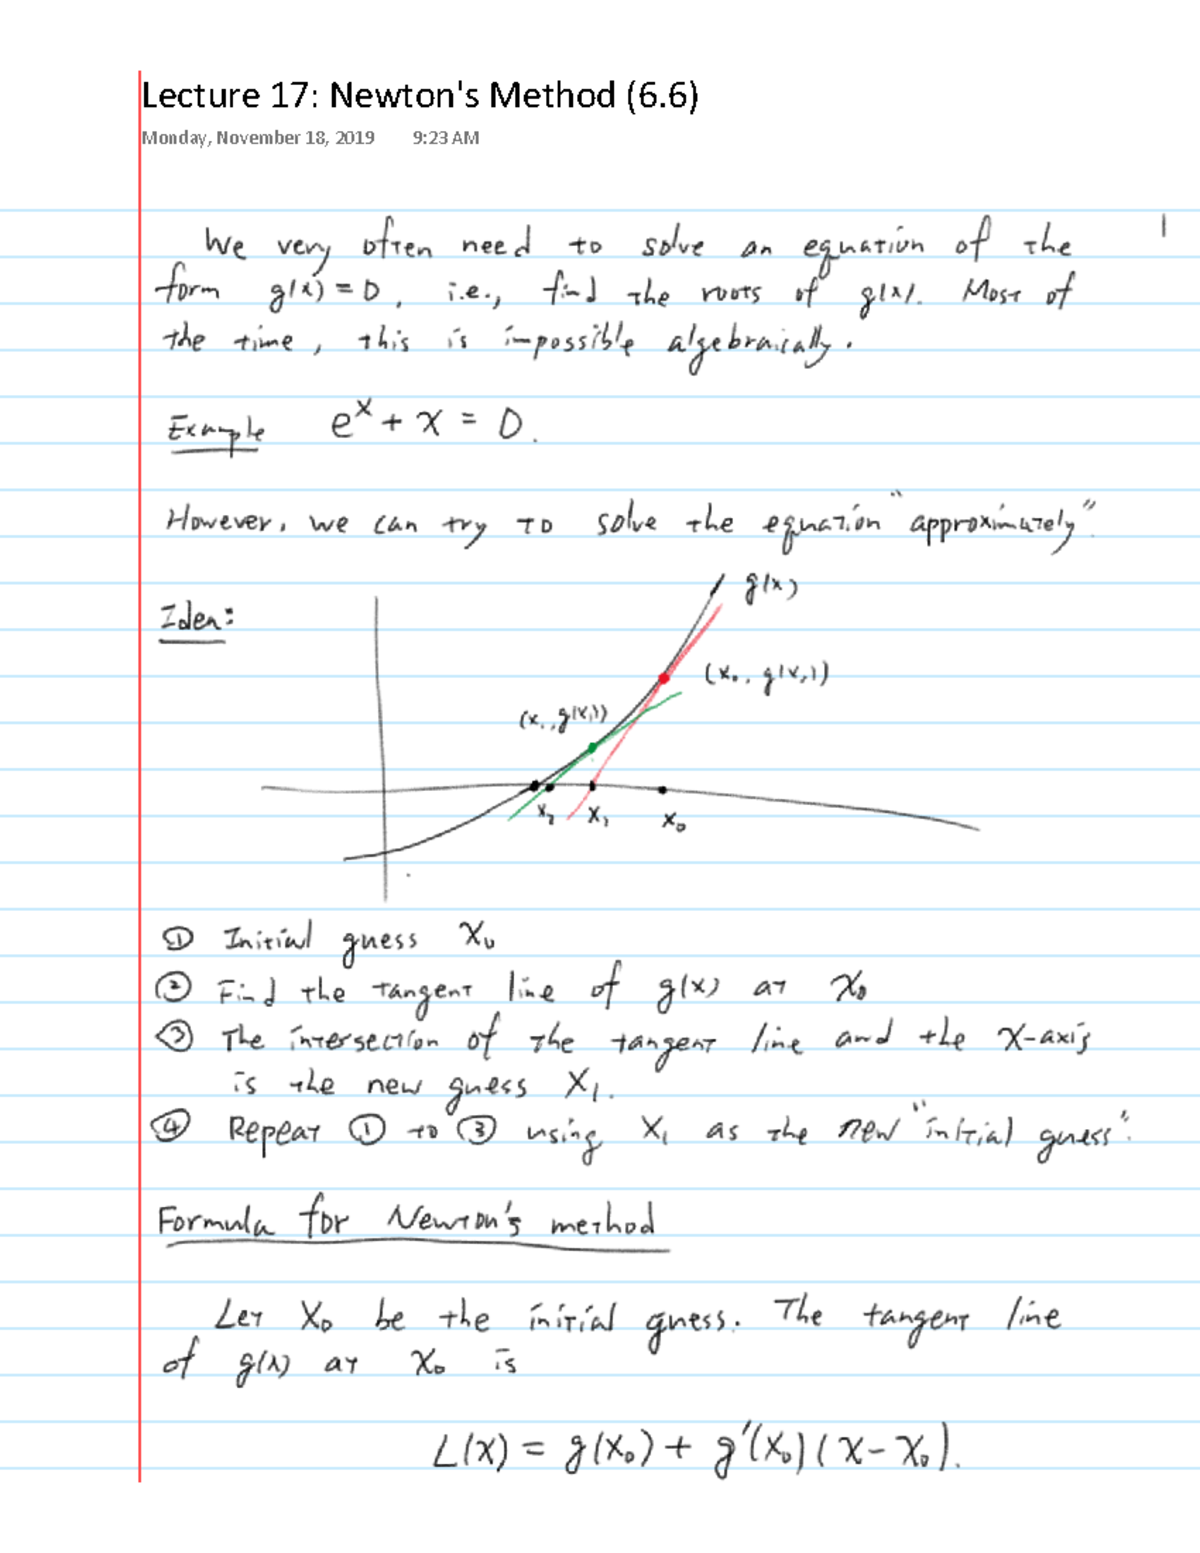 Lecture 17: Newton's Method (6.6)
Monday, November 18, 2019 9:23 AM
1
We very often need to solve an equation of the
form g(x) = 0, i.e., find the roots of g(x). Most of
the time, this is impossible algebraically.
Example e^x + x = 0.
However, we can try to solve the equation "approximately".
Idea:
g(x)
(x₀, g(x₀))
(x₁, g(x₁))
x₂ x₁ x₀
① Initial guess x₀
② Find the tangent line of g(x) at x₀
③ The intersection of the tangent line and the x-axis
is the new guess x₁.
④ Repeat ① to ③ using x₁ as the new "initial guess".
Formula for Newton's method
Let x₀ be the initial guess. The tangent line
of g(x) at x₀ is
L(x) = g(x₀) + g'(x₀)(x - x₀).